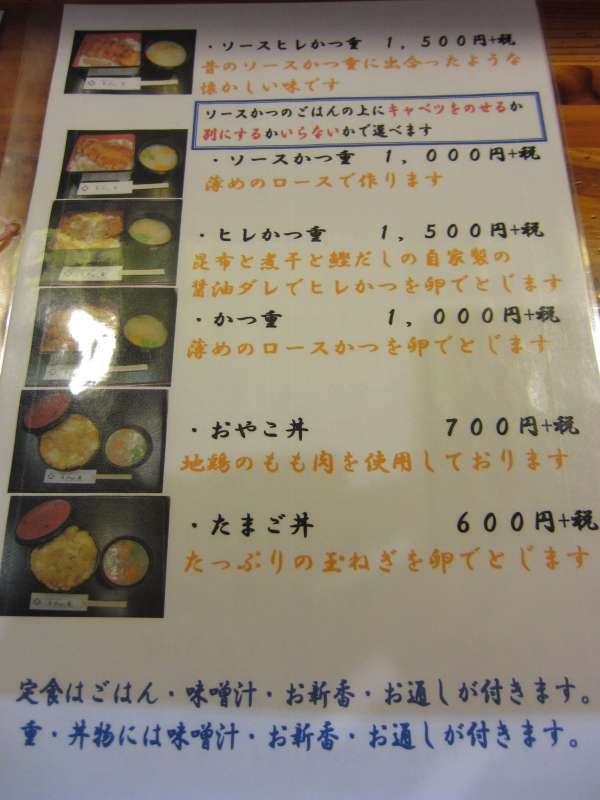 ・ソースヒレかつ重　１，５００円+税
昔のソースかつ重に出合ったような
懐かしい味です
ソースかつのごはんの上にキャベツをのせるか
別にするかいらないかで選べます
・ソースかつ重　１，０００円+税
薄めのロースで作ります
・ヒレかつ重　１，５００円+税
昆布と煮干と鰹だしの自家製の
醤油ダレでヒレかつを卵でとじます
・かつ重　１，０００円+税
薄めのロースかつを卵でとじます
・おやこ丼　７００円+税
地鶏のもも肉を使用しております
・たまご丼　６００円+税
たっぷりの玉ねぎを卵でとじます
定食はごはん・味噌汁・お新香・お通しが付きます。
重・丼物には味噌汁・お新香・お通しが付きます。